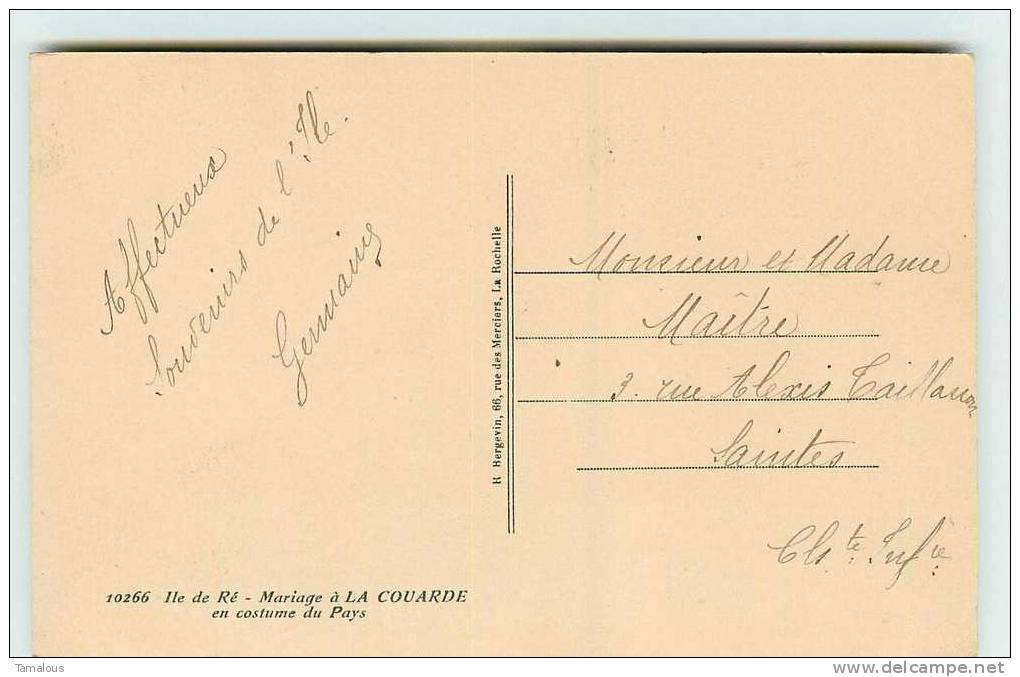 Affectueux
Souvenirs de l'Ile.
Germaine
R Bergevin, 66, rue des Merciers, La Rochelle
Monsieur et Madame
Maître
3. rue Alexis Taillasson
Saintes
Chte Infre
10266 Ile de Ré - Mariage à LA COUARDE
en costume du Pays
Tamalous
www.delcampe.net